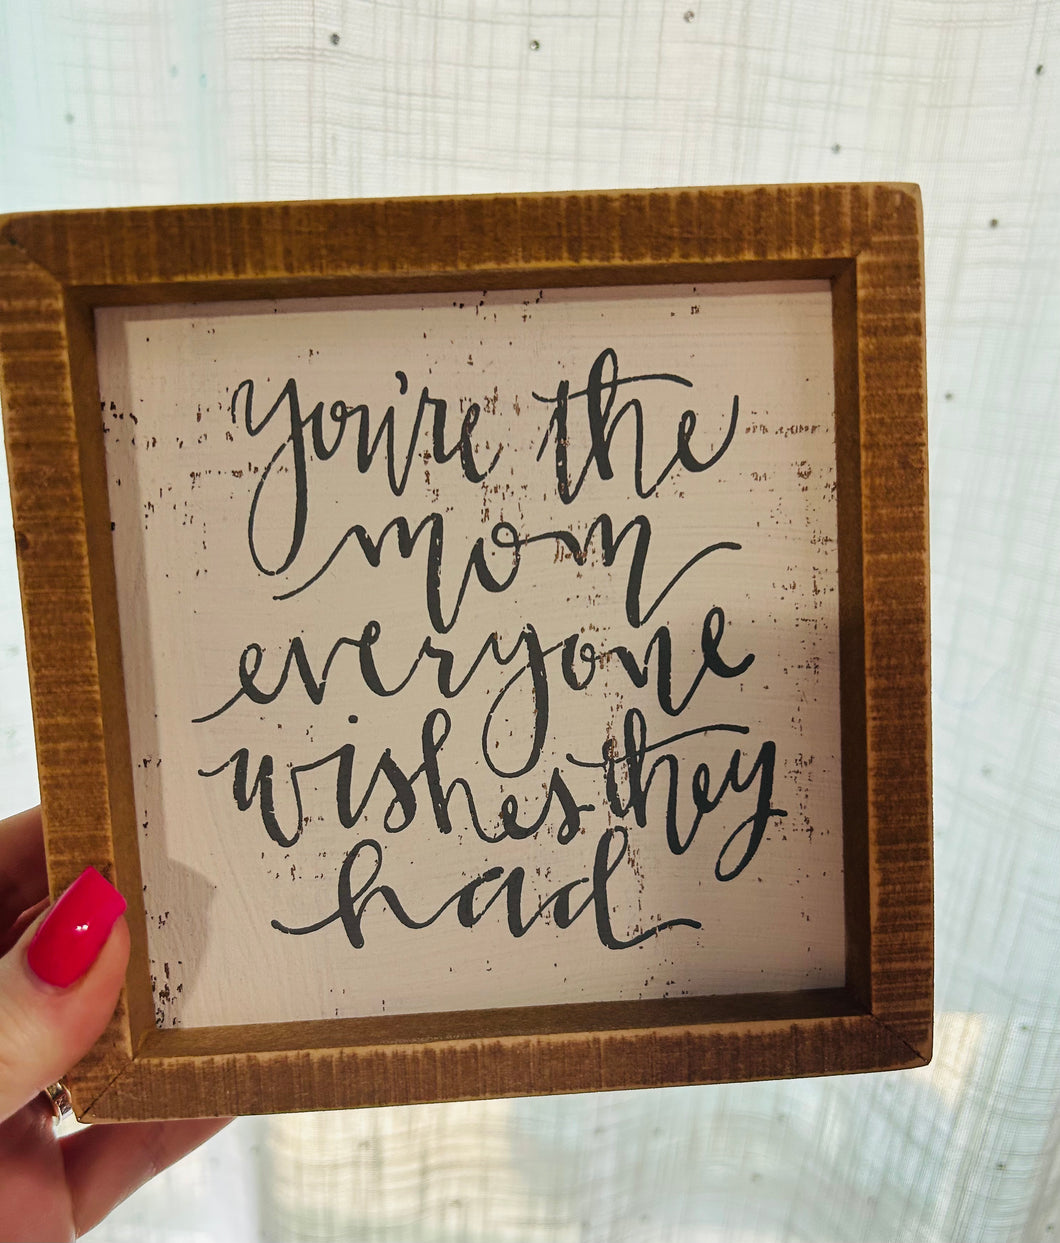 you're the
mom
everyone
wishes they
had